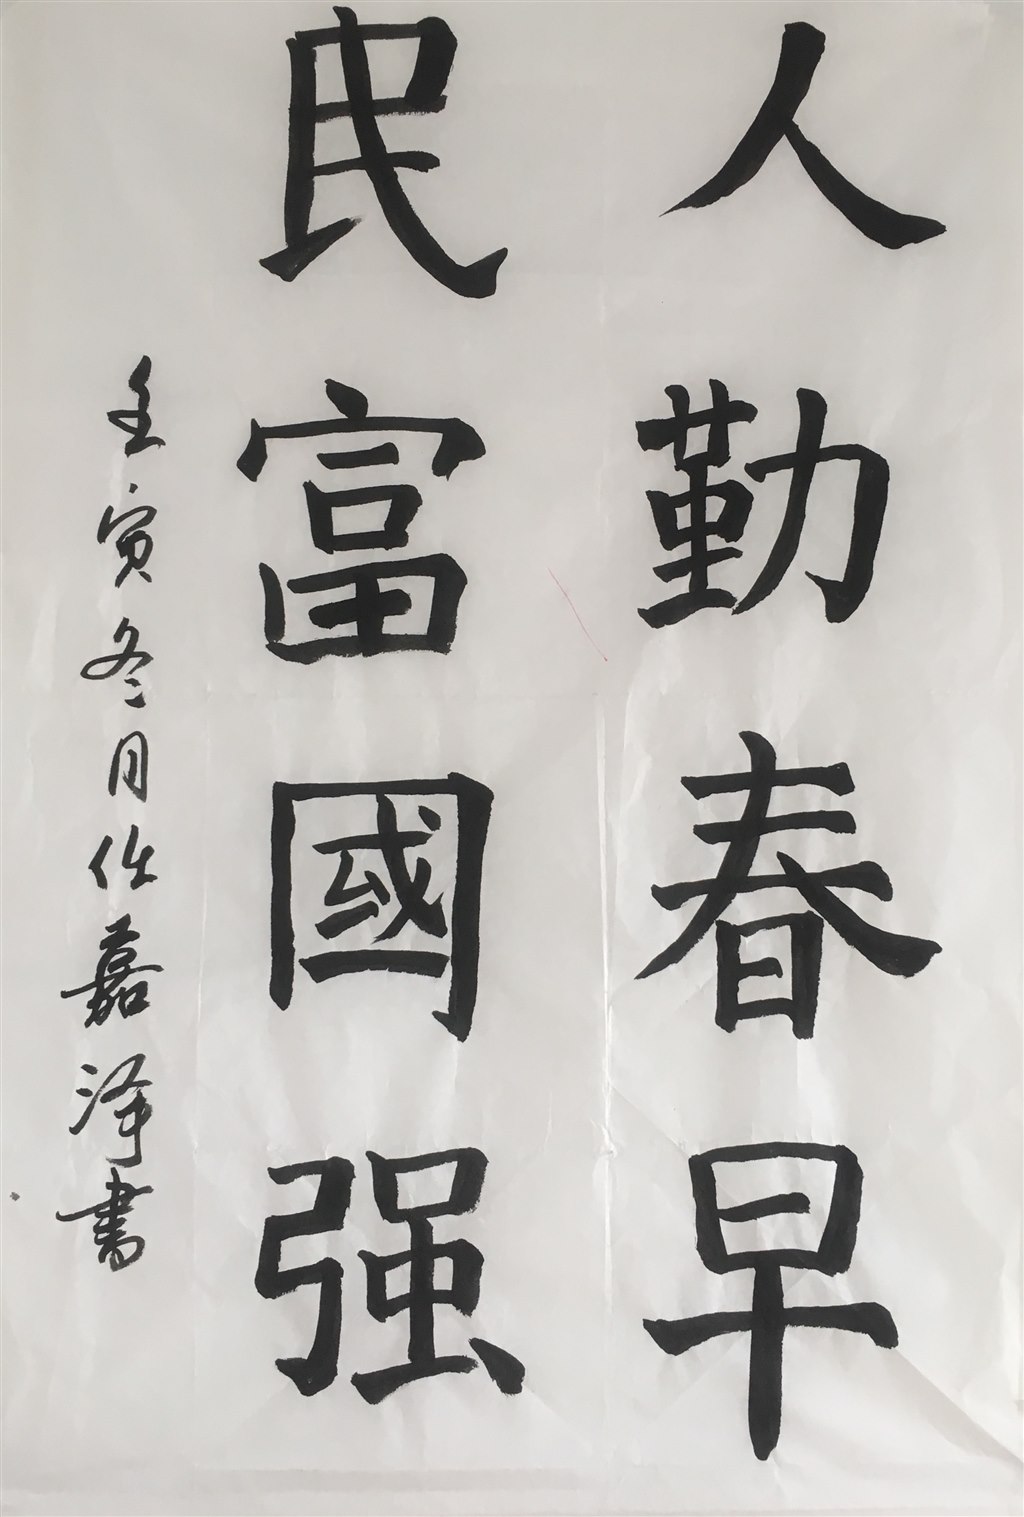 人勤春早
民富國强
壬寅冬月任嘉泽書